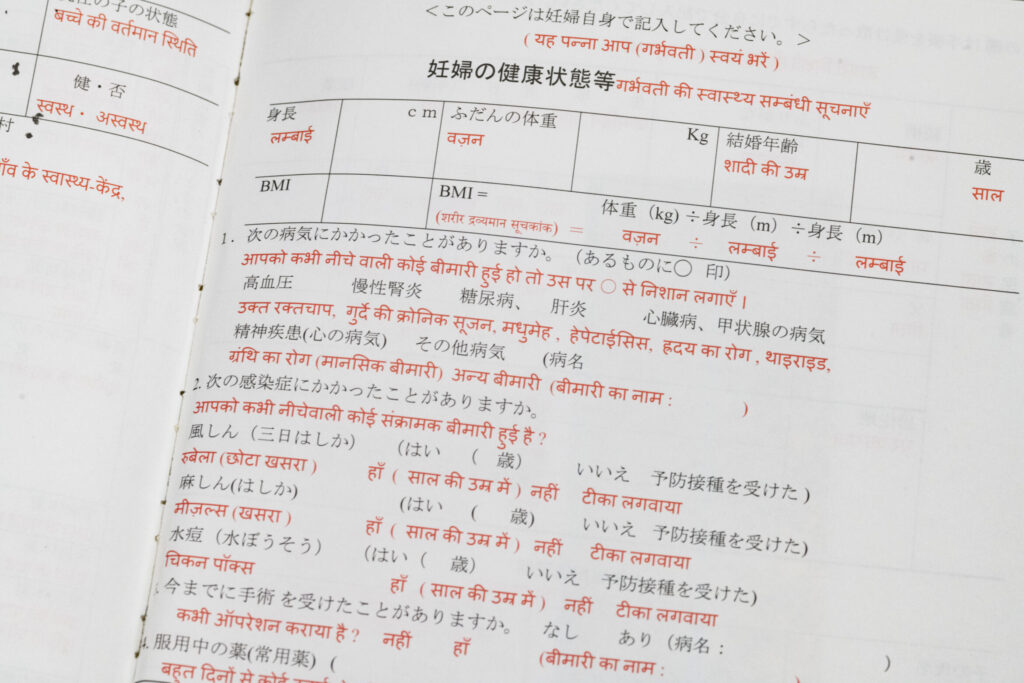 の子の状態
बच्चे की वर्तमान स्थिति
健・否
स्वस्थ・ अस्वस्थ
村
के स्वास्थ्य-केंद्र,
<このページは妊婦自身で記入してください。>
( यह पन्ना आप (गर्भवती ) स्वयं भरें )
妊婦の健康状態等गर्भवती की स्वास्थ्य सम्बंधी सूचनाएँ
身長 cm ふだんの体重 Kg 結婚年齢 歳
लम्बाई वज़न शादी की उम्र साल
BMI BMI = 体重（kg) ÷身長（m）÷身長（m）
(शरीर द्रव्यमान सूचकांक) = वज़न ÷ लम्बाई ÷ लम्बाई
1. 次の病気にかかったことがありますか。（あるものに○ 印）
आपको कभी नीचे वाली कोई बीमारी हुई हो तो उस पर ○ से निशान लगाएँ ।
高血圧 慢性腎炎 糖尿病、 肝炎 心臓病、甲状腺の病気
उक्त रक्तचाप, गुर्दे की क्रोनिक सूजन, मधुमेह , हेपेटाईसिस, ह्रदय का रोग , थाइराइड,
精神疾患(心の病気) その他病気 (病名
ग्रंथि का रोग (मानसिक बीमारी) अन्य बीमारी (बीमारी का नाम : )
2. 次の感染症にかかったことがありますか。
आपको कभी नीचेवाली कोई संक्रामक बीमारी हुई है ?
風しん（三日はしか） （はい （ 歳） いいえ 予防接種を受けた )
रुबेला (छोटा खसरा ) हाँ ( साल की उम्र में ) नहीं टीका लगवाया
麻しん(はしか) （はい （ 歳) いいえ 予防接種を受けた)
मीज़ल्स (खसरा ) हाँ ( साल की उम्र में ) नहीं टीका लगवाया
水痘（水ぼうそう） （はい（ 歳） いいえ 予防接種を受けた)
चिकन पॉक्स हाँ ( साल की उम्र में ) नहीं टीका लगवाया
今までに手術 を受けたことがありますか。 なし あり（病名： )
कभी ऑपरेशन कराया है ? नहीं हाँ (बीमारी का नाम : )
4. 服用中の薬(常用薬) (
बहुत दिनों से कोई